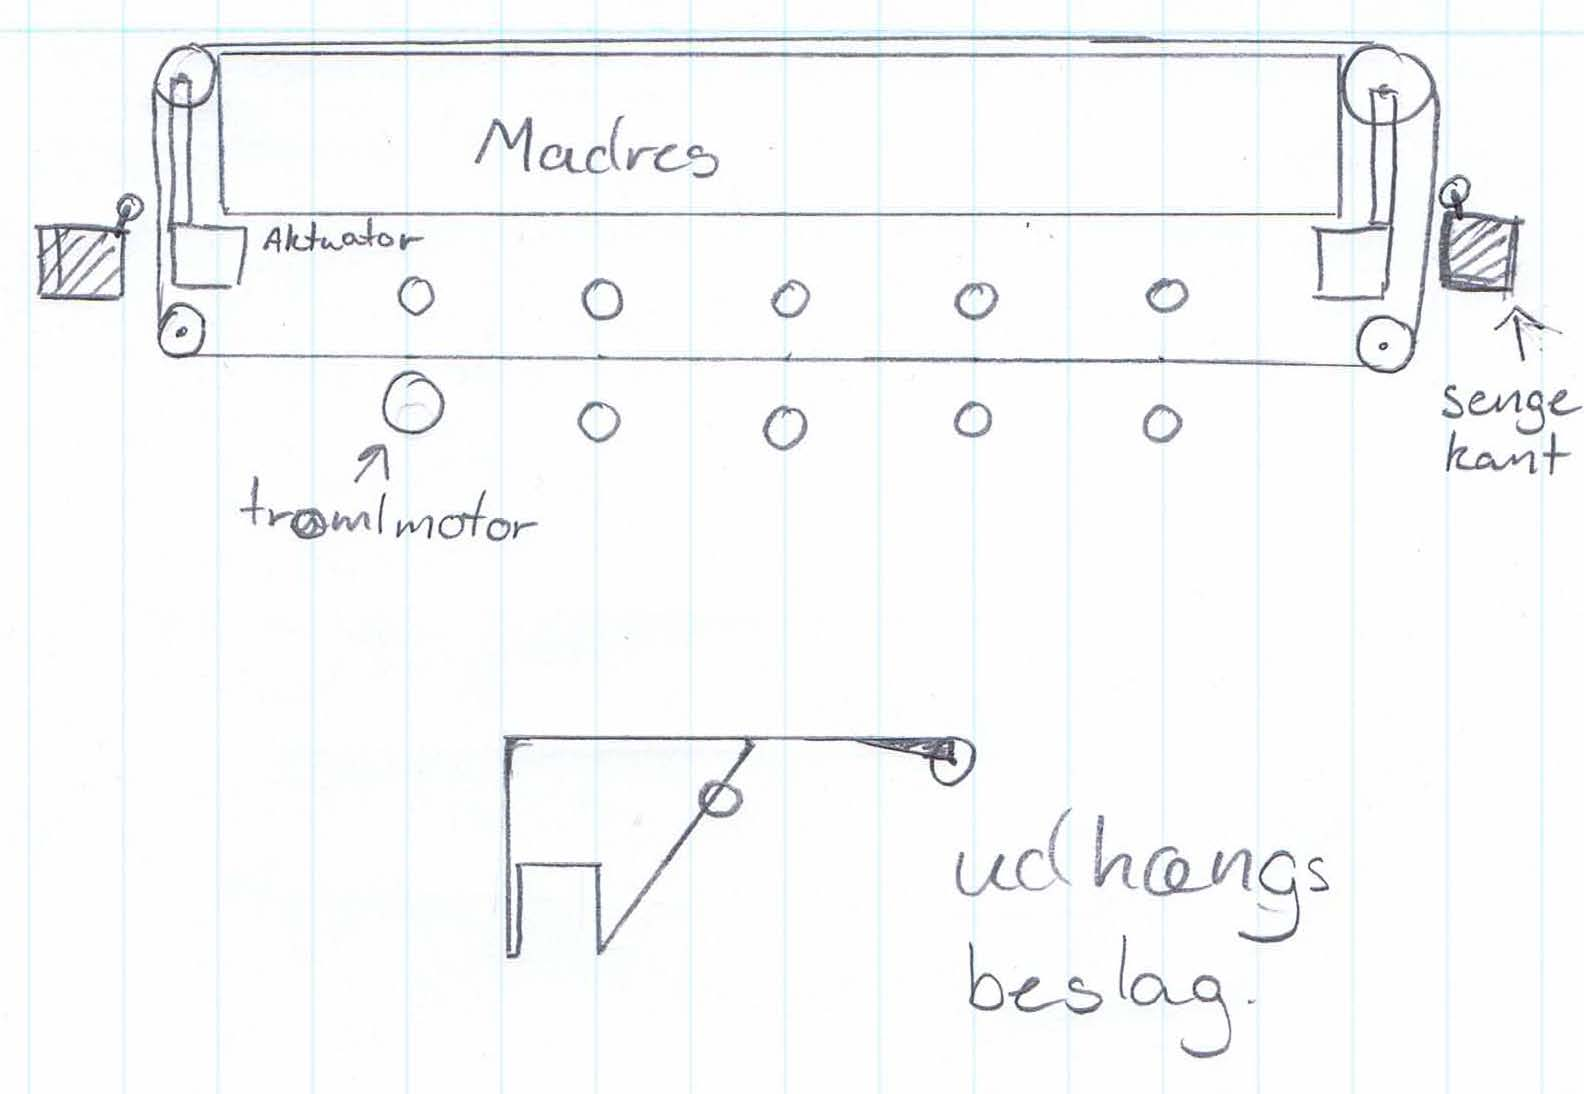 Madres
Aktuator
senge
kant
tromlmotor
udhængs
beslag.